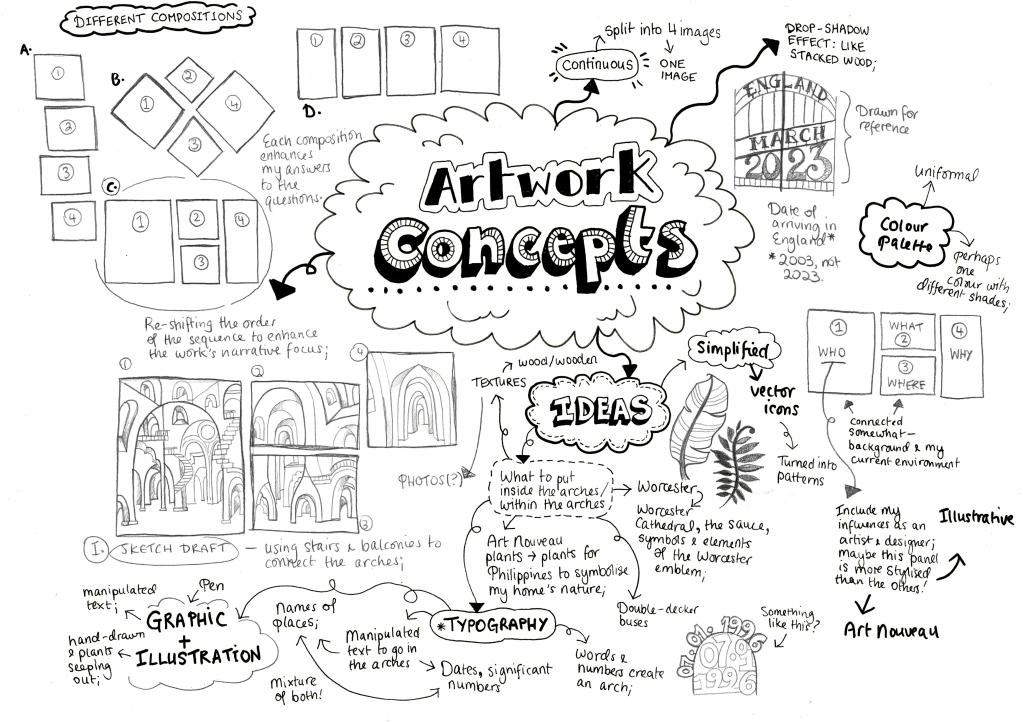 DIFFERENT COMPOSITIONS
A.
1
2
3
4
B.
1
2
3
4
C.
1
2
3
4
D.
1
2
3
4
Each composition
enhances
my answers
to the
questions.
Re-shifting the order
of the sequence to enhance
the work's narrative focus;
Continuous
Split into 4 images
ONE
IMAGE
DROP-SHADOW
EFFECT: LIKE
STACKED WOOD;
ENGLAND
MARCH
2023
Drawn for
reference
Date of
arriving in
England*
* 2003, not
2023.
Artwork
Concepts
Colour
Palette
uniformal
perhaps
one
colour with
different shades;
1
WHO
WHAT
2
3
WHERE
4
WHY
connected
somewhat-
background & my
current environment
Include my
influences as an
artist & designer;
maybe this panel
is more stylised
than the others!
Illustrative
Art Nouveau
Simplified
vector
icons
Turned into
patterns
IDEAS
TEXTURES
wood/wooden
PHOTOS(?)
What to put
inside the arches/
within the arches
Worcester
Worcester
Cathedral, the sauce,
symbols & elements
of the Worcester
emblem;
Art Nouveau
plants → plants for
Philippines to symbolise
my home's nature;
Double-decker
buses
1
2
3
4
I. SKETCH DRAFT — using stairs & balconies to
connect the arches;
*TYPOGRAPHY
Names of
places;
Manipulated
text to go in
the arches
Mixture
of both!
Dates, significant
numbers
Words &
numbers create
an arch;
Something
like this?
07.01.1996
07.01
1996
GRAPHIC
+
ILLUSTRATION
Pen
manipulated
text;
hand-drawn
& plants
seeping
out;